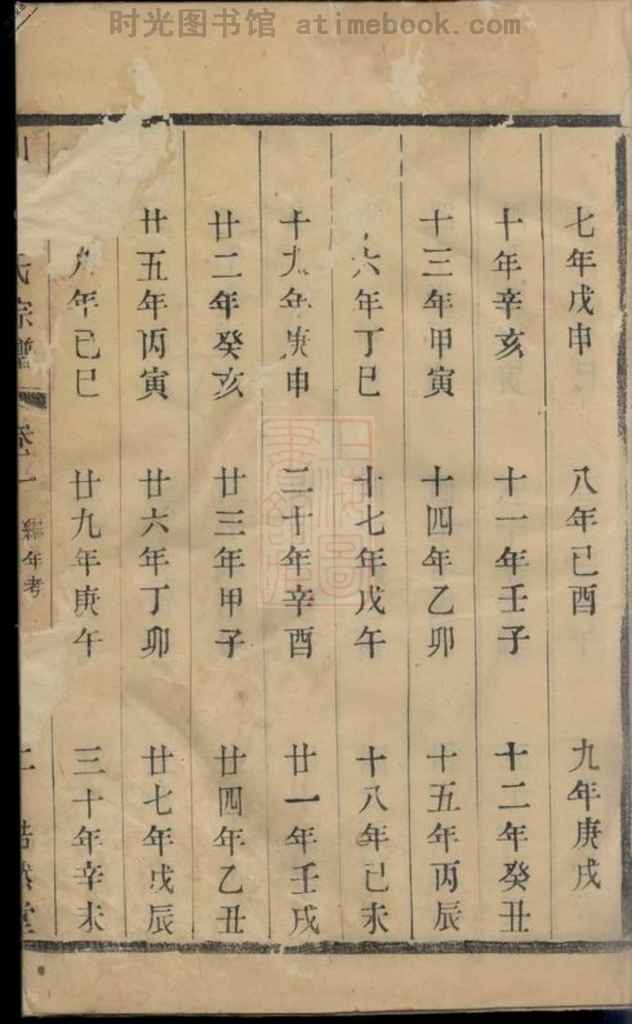 时光图书馆 atimebook.com
七年戊申 八年己酉 九年庚戌
十年辛亥 十一年壬子 十二年癸丑
十三年甲寅 十四年乙卯 十五年丙辰
六年丁巳 十七年戊午 十八年己未
十九年庚申 二十年辛酉 廿一年壬戌
廿二年癸亥 廿三年甲子 廿四年乙丑
廿五年丙寅 廿六年丁卯 廿七年戊辰
年己巳 廿九年庚午 三十年辛未
氏宗譜 卷一 編年考 堂